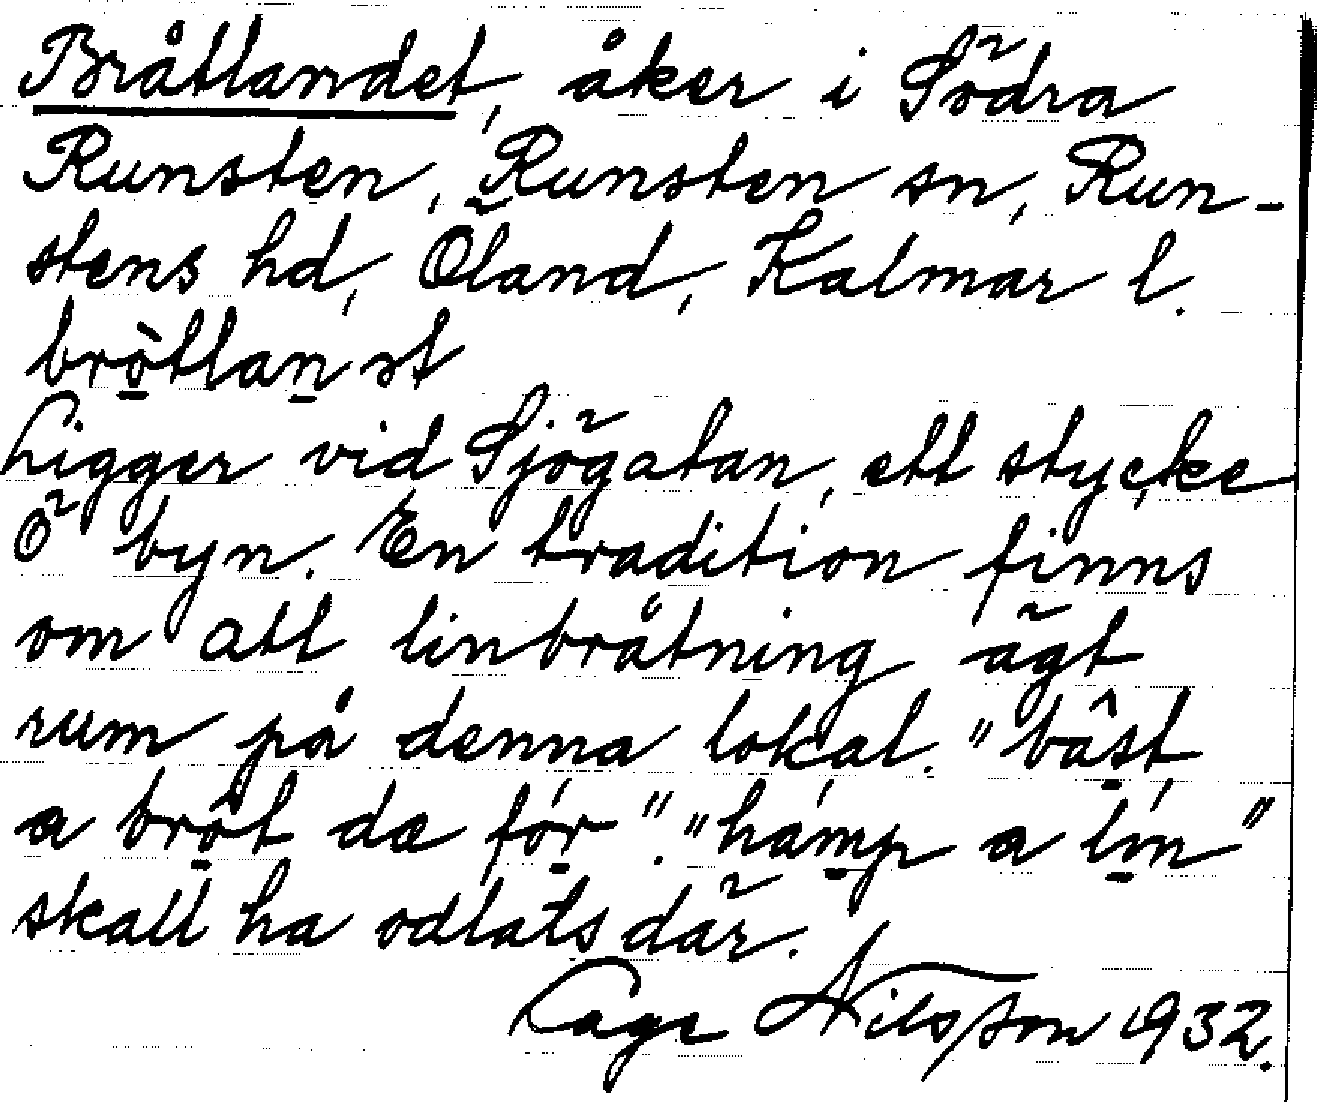 Bråtlandet, åker i Södra
Runsten, Runsten sn, Run-
stens hd, Öland, Kalmar l.
brò̱tlan̠st
Ligger vid Sjögatan, ett stycke
Ö byn. En tradition finns
om att linbråtning ägt
rum på denna lokal. "bâs̠t,
a brö̠̂t dæ fór̠". "hám̠p a lín̠"
skall ha odlats där.
Lage Nilsson 1932.